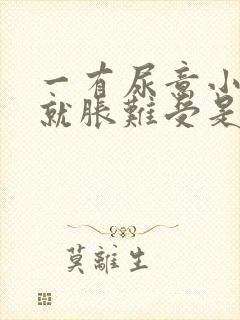 一有尿意小
就脹難受是
莫離生